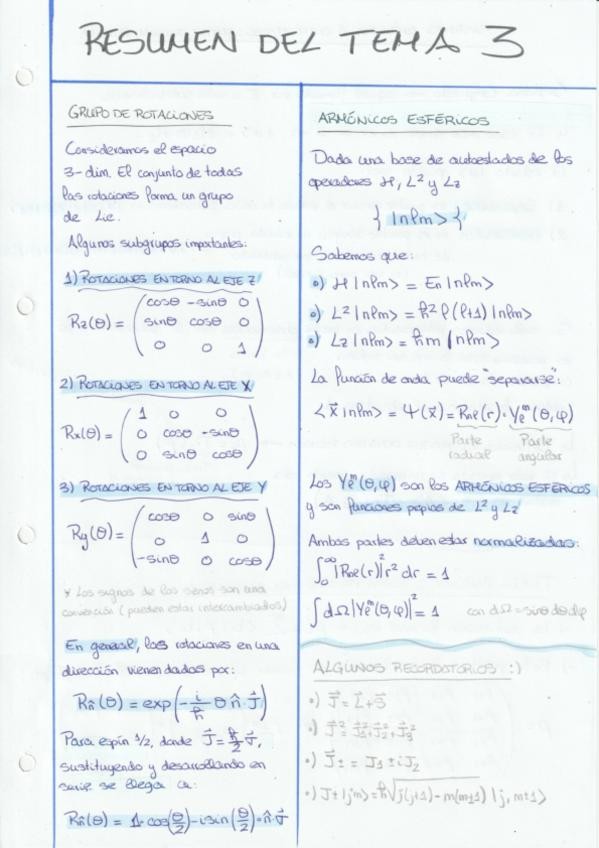 RESUMEN DEL TEMA 3
GRUPO DE ROTACIONES
Consideramos el espacio
3-dim. El conjunto de todas
las rotaciones forma un grupo
de Lie.
Algunos subgrupos importantes:
1) ROTACIONES ENTORNO AL EJE Z
Rz(θ) = ( cosθ -sinθ 0
sinθ cosθ 0
0 0 1 )
2) ROTACIONES EN TORNO AL EJE X
Rx(θ) = ( 1 0 0
0 cosθ -sinθ
0 sinθ cosθ )
3) ROTACIONES EN TORNO AL EJE Y
Ry(θ) = ( cosθ 0 sinθ
0 1 0
-sinθ 0 cosθ )
* Los signos de los senos son una
convención (pueden estar intercambiados)
En general, las rotaciones en una
dirección vienen dadas por:
Rn̂(θ) = exp(-i/ħ θ n̂·J⃗)
Para espín 1/2, donde J⃗ = ħ/2 σ⃗,
sustituyendo y desarrollando en
serie se llega a:
Rn̂(θ) = 1·cos(θ/2) - i sin(θ/2) n̂·σ⃗
ARMÓNICOS ESFÉRICOS
Dada una base de autoestados de los
operadores H, L² y Lz
{ |nlm> {
Sabemos que:
•) H |nlm> = En |nlm>
•) L² |nlm> = ħ² l(l+1) |nlm>
•) Lz |nlm> = ħm |nlm>
La función de onda puede "separarse":
<x⃗|nlm> = Ψ(x⃗) = Rnl(r)·Yₗᵐ(θ,φ)
Parte Parte
radial angular
Los Yₗᵐ(θ,φ) son los ARMÓNICOS ESFÉRICOS
y son funciones propias de L² y Lz
Ambas partes deben estar normalizadas:
∫₀^∞ |Rnl(r)|² r² dr = 1
∫dΩ |Yₗᵐ(θ,φ)|² = 1 con dΩ = sinθ dθ dφ
ALGUNOS RECORDATORIOS :)
•) J⃗ = L⃗ + S⃗
•) J⃗² = J₁² + J₂² + J₃²
•) J± = J₁ ± iJ₂
•) J± |jm> = ħ√(j(j+1) - m(m±1)) |j, m±1>